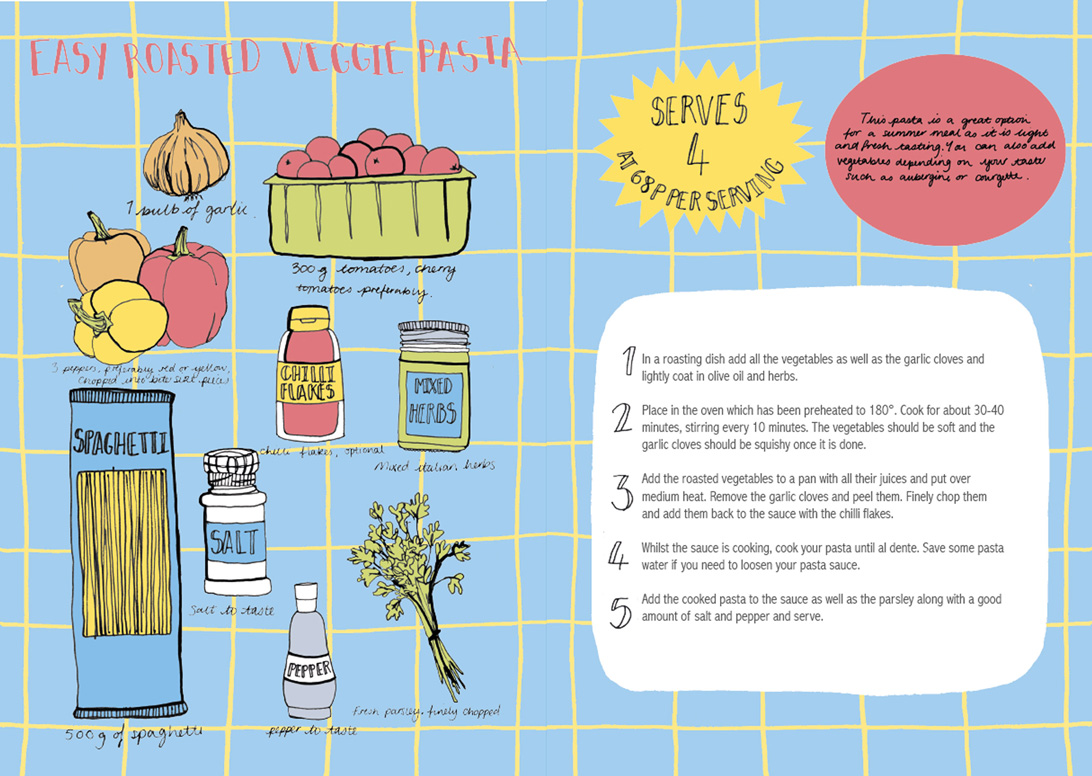 EASY ROASTED VEGGIE PASTA
1 bulb of garlic.
300g tomatoes, cherry
tomatoes preferably.
3 peppers, preferably red or yellow,
chopped into bite size pieces
CHILLI
FLAKES
chilli flakes, optional
MIXED
HERBS
Mixed italian herbs
SPAGHETTI
500g of spaghetti
SALT
Salt to taste
PEPPER
pepper to taste
Fresh parsley, finely chopped
SERVES
4
AT 68P PER SERVING
This pasta is a great option
for a summer meal as it is light
and fresh tasting. You can also add
vegetables depending on your taste
such as aubergine or courgette.
1 In a roasting dish add all the vegetables as well as the garlic cloves and
lightly coat in olive oil and herbs.
2 Place in the oven which has been preheated to 180°. Cook for about 30-40
minutes, stirring every 10 minutes. The vegetables should be soft and the
garlic cloves should be squishy once it is done.
3 Add the roasted vegetables to a pan with all their juices and put over
medium heat. Remove the garlic cloves and peel them. Finely chop them
and add them back to the sauce with the chilli flakes.
4 Whilst the sauce is cooking, cook your pasta until al dente. Save some pasta
water if you need to loosen your pasta sauce.
5 Add the cooked pasta to the sauce as well as the parsley along with a good
amount of salt and pepper and serve.